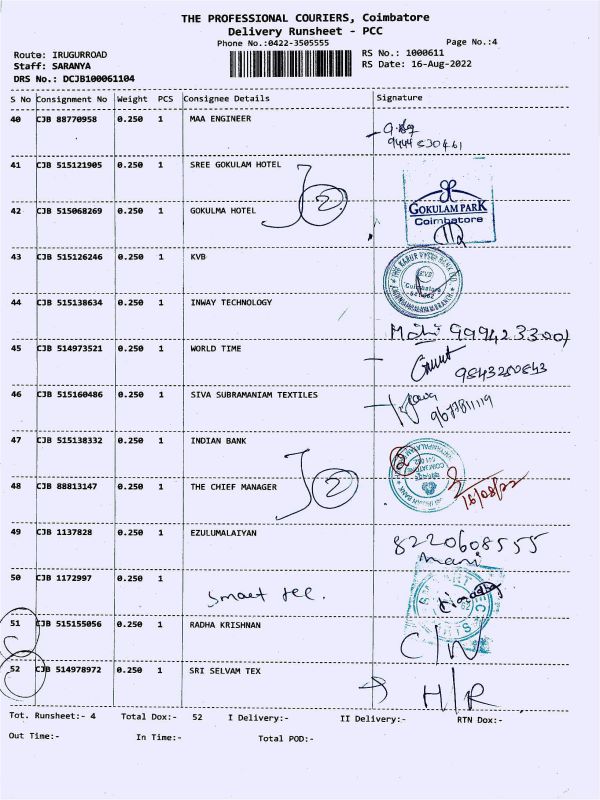 THE PROFESSIONAL COURIERS, Coimbatore
Delivery Runsheet - PCC
Phone No.:0422-3505555
Page No.:4
Route: IRUGURROAD
RS No.: 1000611
Staff: SARANYA
RS Date: 16-Aug-2022
DRS No.: DCJB100061104
S No Consignment No Weight PCS Consignee Details Signature
40 CJB 88770958 0.250 1 MAA ENGINEER
41 CJB 515121905 0.250 1 SREE GOKULAM HOTEL
2
GOKULAM PARK
Coimbatore
42 CJB 515068269 0.250 1 GOKULMA HOTEL
43 CJB 515126246 0.250 1 KVB
44 CJB 515138634 0.250 1 INWAY TECHNOLOGY
45 CJB 514973521 0.250 1 WORLD TIME
9843280843
46 CJB 515160486 0.250 1 SIVA SUBRAMANIAM TEXTILES
9677811119
47 CJB 515138332 0.250 1 INDIAN BANK
2
48 CJB 88813147 0.250 1 THE CHIEF MANAGER
2
16/08/22
49 CJB 1137828 0.250 1 EZULUMALAIYAN
8220608555
Mani
50 CJB 1172997 0.250 1
Smart tec.
51 CJB 515155056 0.250 1 RADHA KRISHNAN
C/N
52 CJB 514978972 0.250 1 SRI SELVAM TEX
H/R
Tot. Runsheet:- 4 Total Dox:- 52 I Delivery:- II Delivery:- RTN Dox:-
Out Time:- In Time:- Total POD:-